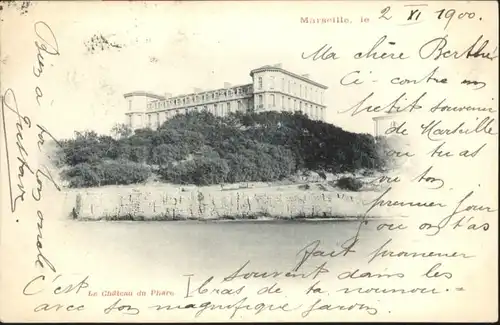 Marseille, le 2 XI 1900.
Ma chère Berthe
Ci contre un
petit souvenir
de Marseille
où tu as
vu ton
premier jour
ou on t'as
fait promener
souvent dans les
bras de ta nounou.
C'est
avec son magnifique jardin
Bis à ton oncle
Gustave
Le Château du Pharo